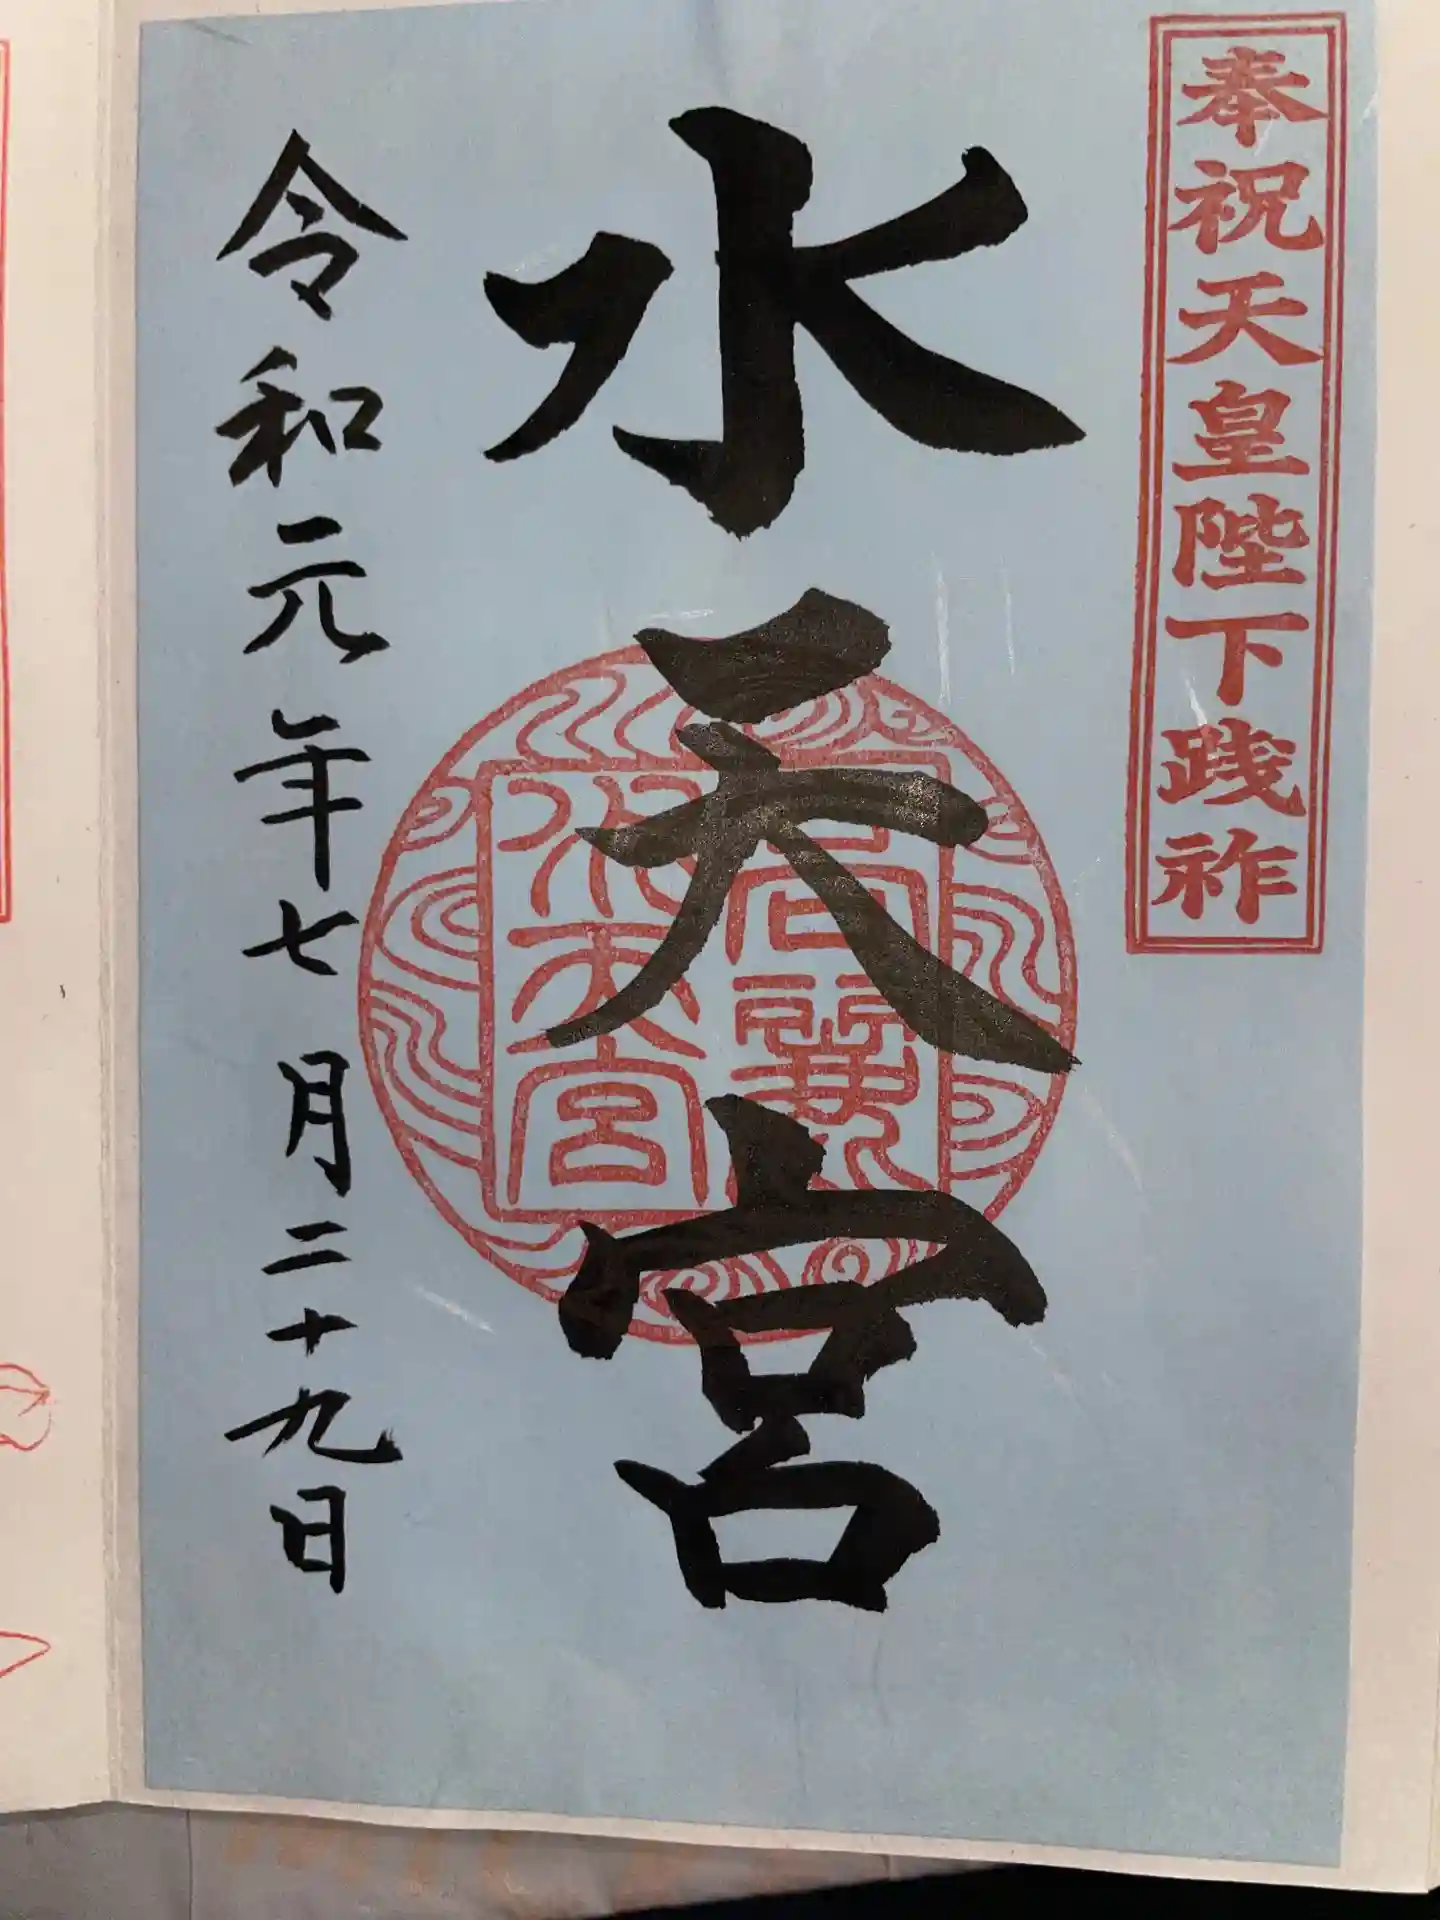 奉祝天皇陛下践祚
水天宮
水天宮
令和元年七月二十九日